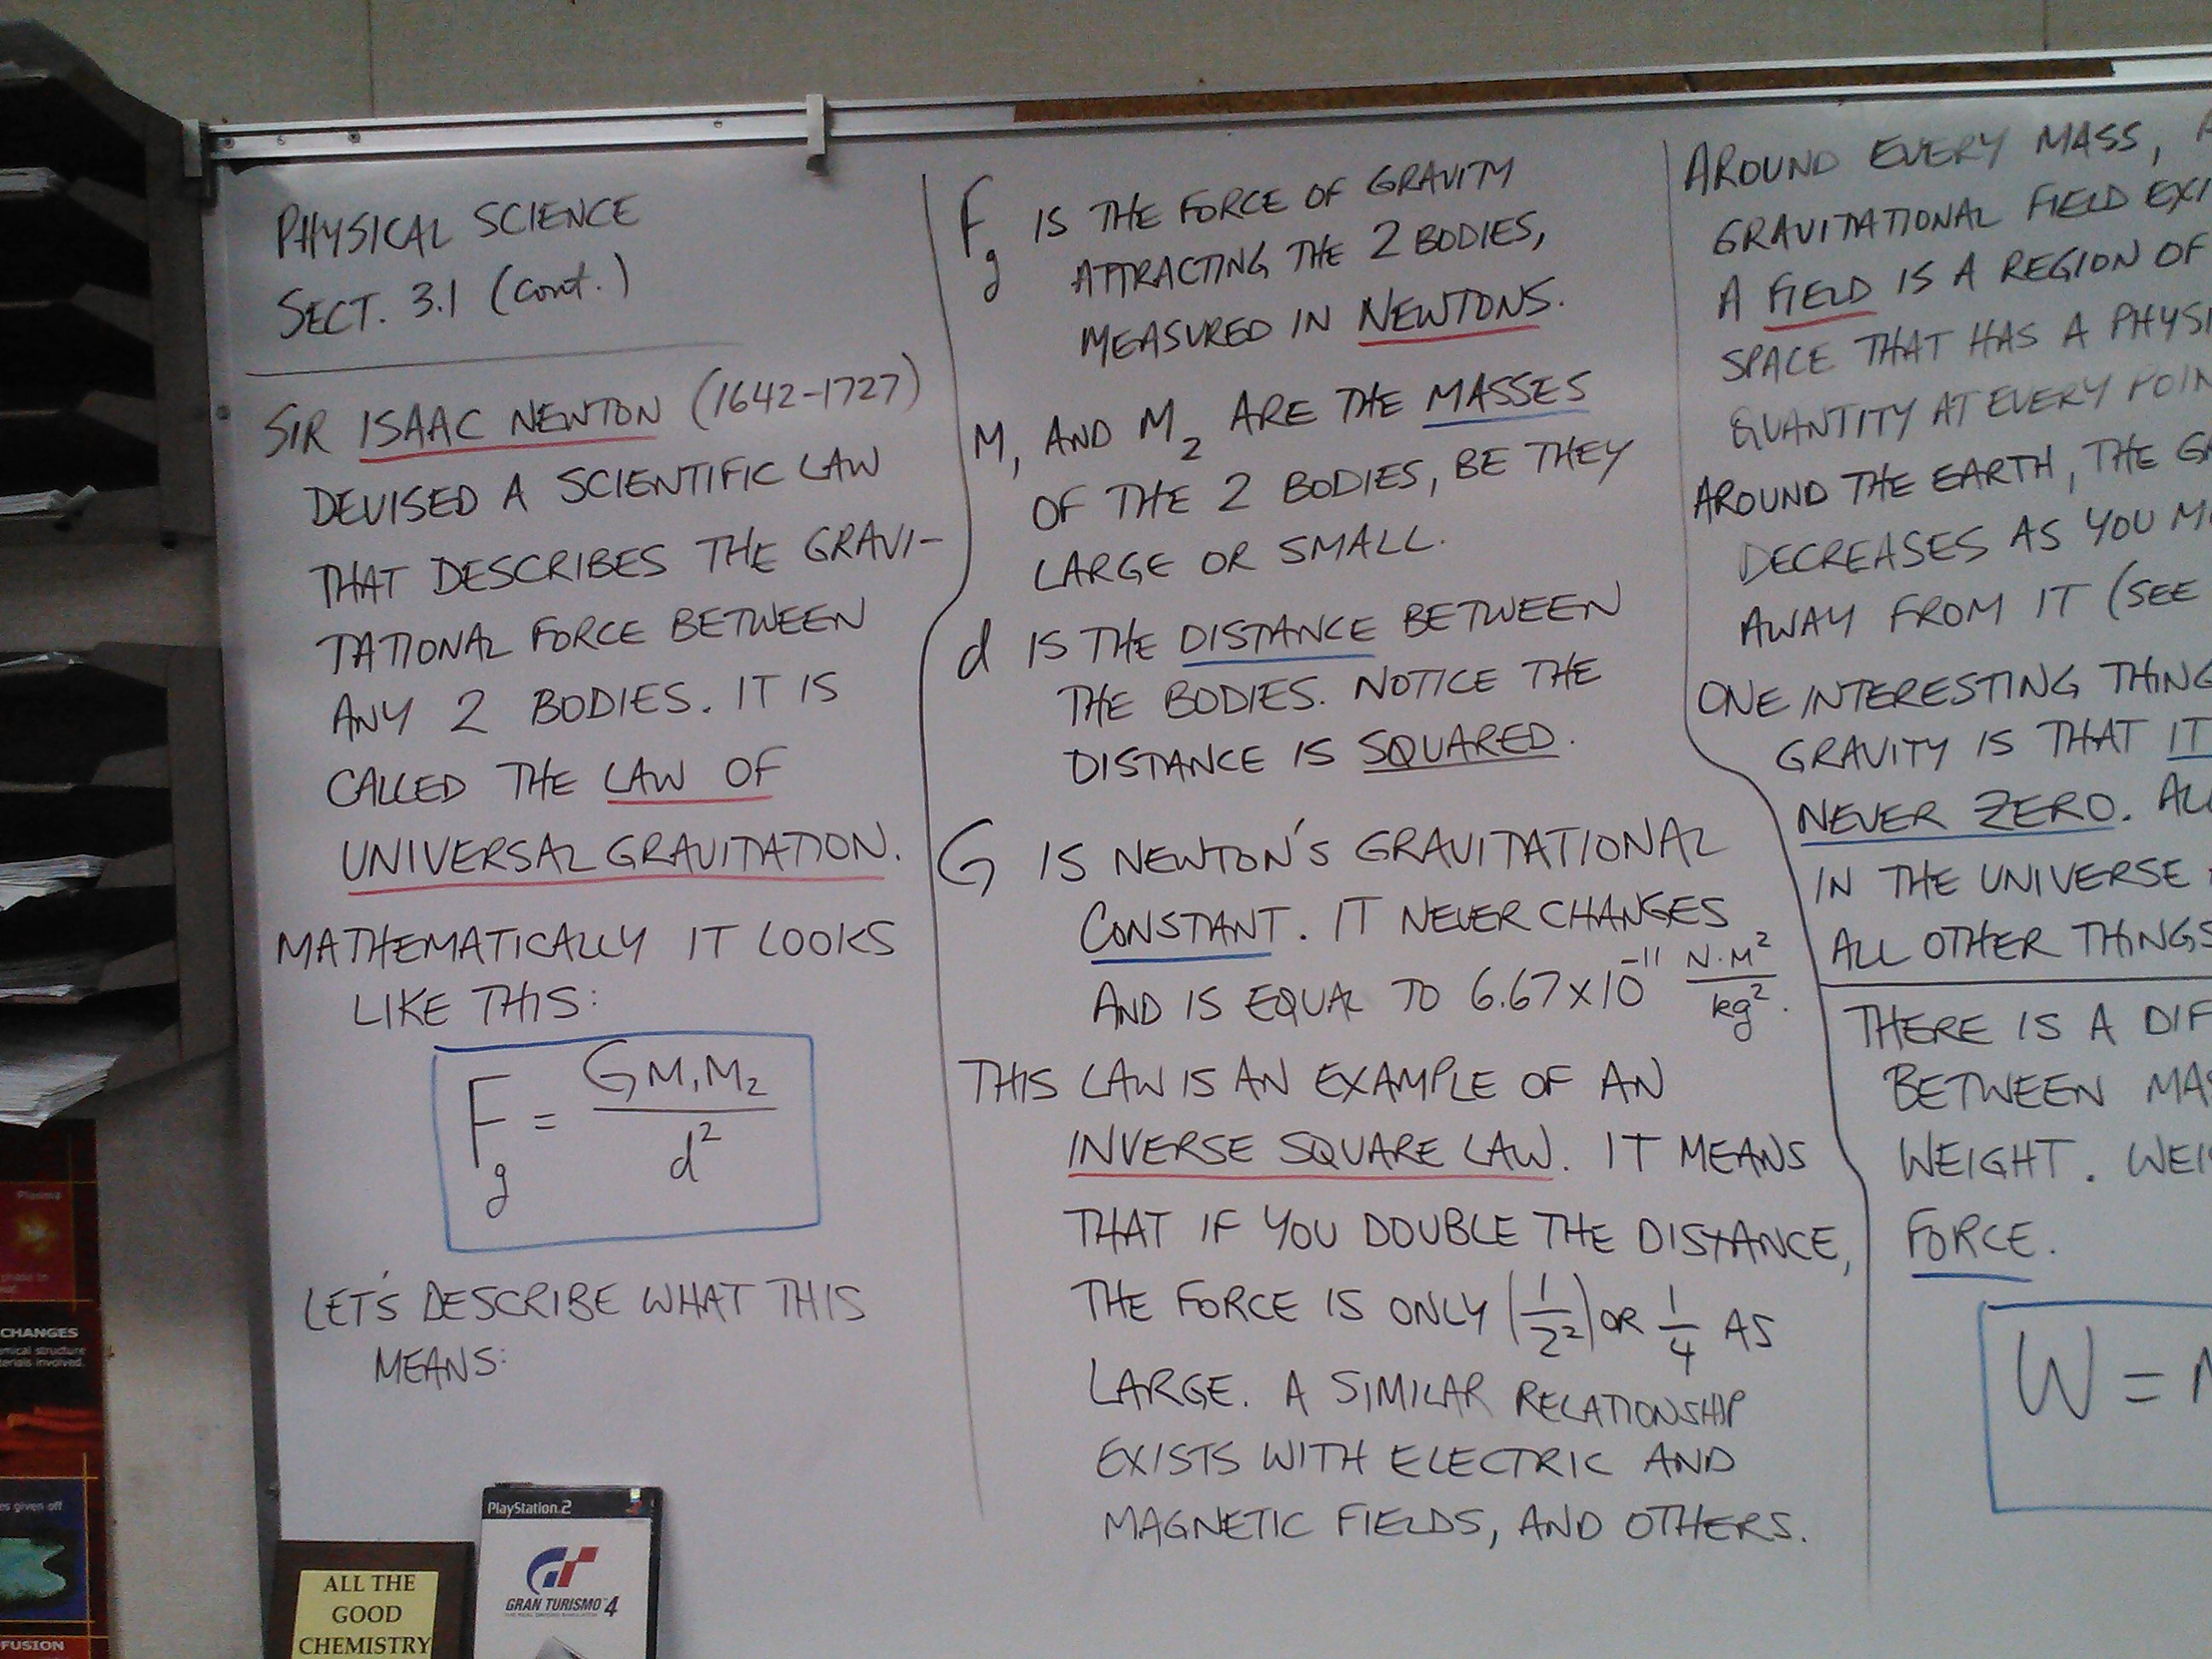 PHYSICAL SCIENCE
SECT. 3.1 (cont.)
SIR ISAAC NEWTON (1642-1727)
DEVISED A SCIENTIFIC LAW
THAT DESCRIBES THE GRAVI-
TATIONAL FORCE BETWEEN
ANY 2 BODIES. IT IS
CALLED THE LAW OF
UNIVERSAL GRAVITATION.
MATHEMATICALLY IT LOOKS
LIKE THIS:
F_g = GM₁M₂ / d²
LET'S DESCRIBE WHAT THIS
MEANS:
F_g IS THE FORCE OF GRAVITY
ATTRACTING THE 2 BODIES,
MEASURED IN NEWTONS.
M₁ AND M₂ ARE THE MASSES
OF THE 2 BODIES, BE THEY
LARGE OR SMALL.
d IS THE DISTANCE BETWEEN
THE BODIES. NOTICE THE
DISTANCE IS SQUARED.
G IS NEWTON'S GRAVITATIONAL
CONSTANT. IT NEVER CHANGES
AND IS EQUAL TO 6.67×10⁻¹¹ N·M²/kg².
THIS LAW IS AN EXAMPLE OF AN
INVERSE SQUARE LAW. IT MEANS
THAT IF YOU DOUBLE THE DISTANCE,
THE FORCE IS ONLY (1/2²) OR 1/4 AS
LARGE. A SIMILAR RELATIONSHIP
EXISTS WITH ELECTRIC AND
MAGNETIC FIELDS, AND OTHERS.
AROUND EVERY MASS,
GRAVITATIONAL FIELD EXI
A FIELD IS A REGION OF
SPACE THAT HAS A PHYSI
QUANTITY AT EVERY POIN
AROUND THE EARTH, THE GR
DECREASES AS YOU M
AWAY FROM IT (SEE
ONE INTERESTING THING
GRAVITY IS THAT IT
NEVER ZERO. ALL
IN THE UNIVERSE
ALL OTHER THINGS
THERE IS A DIF
BETWEEN MAS
WEIGHT. WEI
FORCE.
W =
Plasma
CHANGES
emical structure
terials involved.
es given off
FUSION
ALL THE
GOOD
CHEMISTRY
PlayStation 2
GRAN TURISMO 4
THE REAL DRIVING SIMULATOR